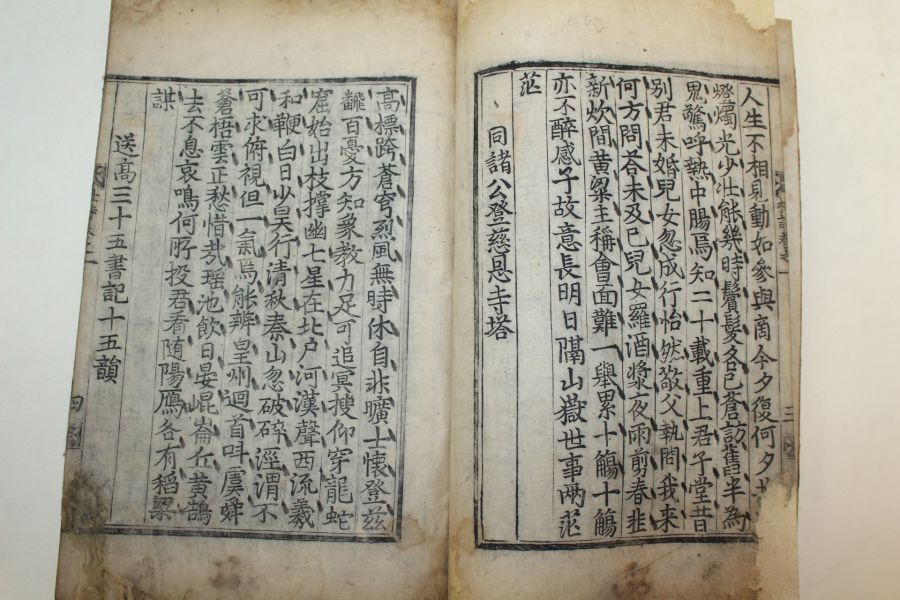 三
人生不相見動如參與商今夕復何夕
燈燭光少壯能幾時鬢髮各已蒼訪舊半為
鬼驚呼熱中腸焉知二十載重上君子堂昔
别君未婚兒女忽成行怡然敬父執問我來
何方問荅未及已兒女羅酒漿夜雨剪春韭
新炊間黄粱主稱會面難一舉累十觴十觴
亦不醉感子故意長明日隔山嶽世事两茫
茫
同諸公登慈恩寺塔
高標跨蒼穹烈風無時休自非曠士懷登兹
飜百憂方知象教力足可追冥搜仰穿龍蛇
窟始出枝撑幽七星在北户河漢聲西流羲
和鞭白日少昊行清秋秦山忽破碎涇渭不
可求俯視但一氣焉能辨皇州迴首叫虞舜
蒼梧雲正愁惜㢤瑶池飲日晏崐崙丘黄鵠
去不息哀鳴何所投君看随陽鴈各有稻粱
謀
送高三十五書記十五韻
四